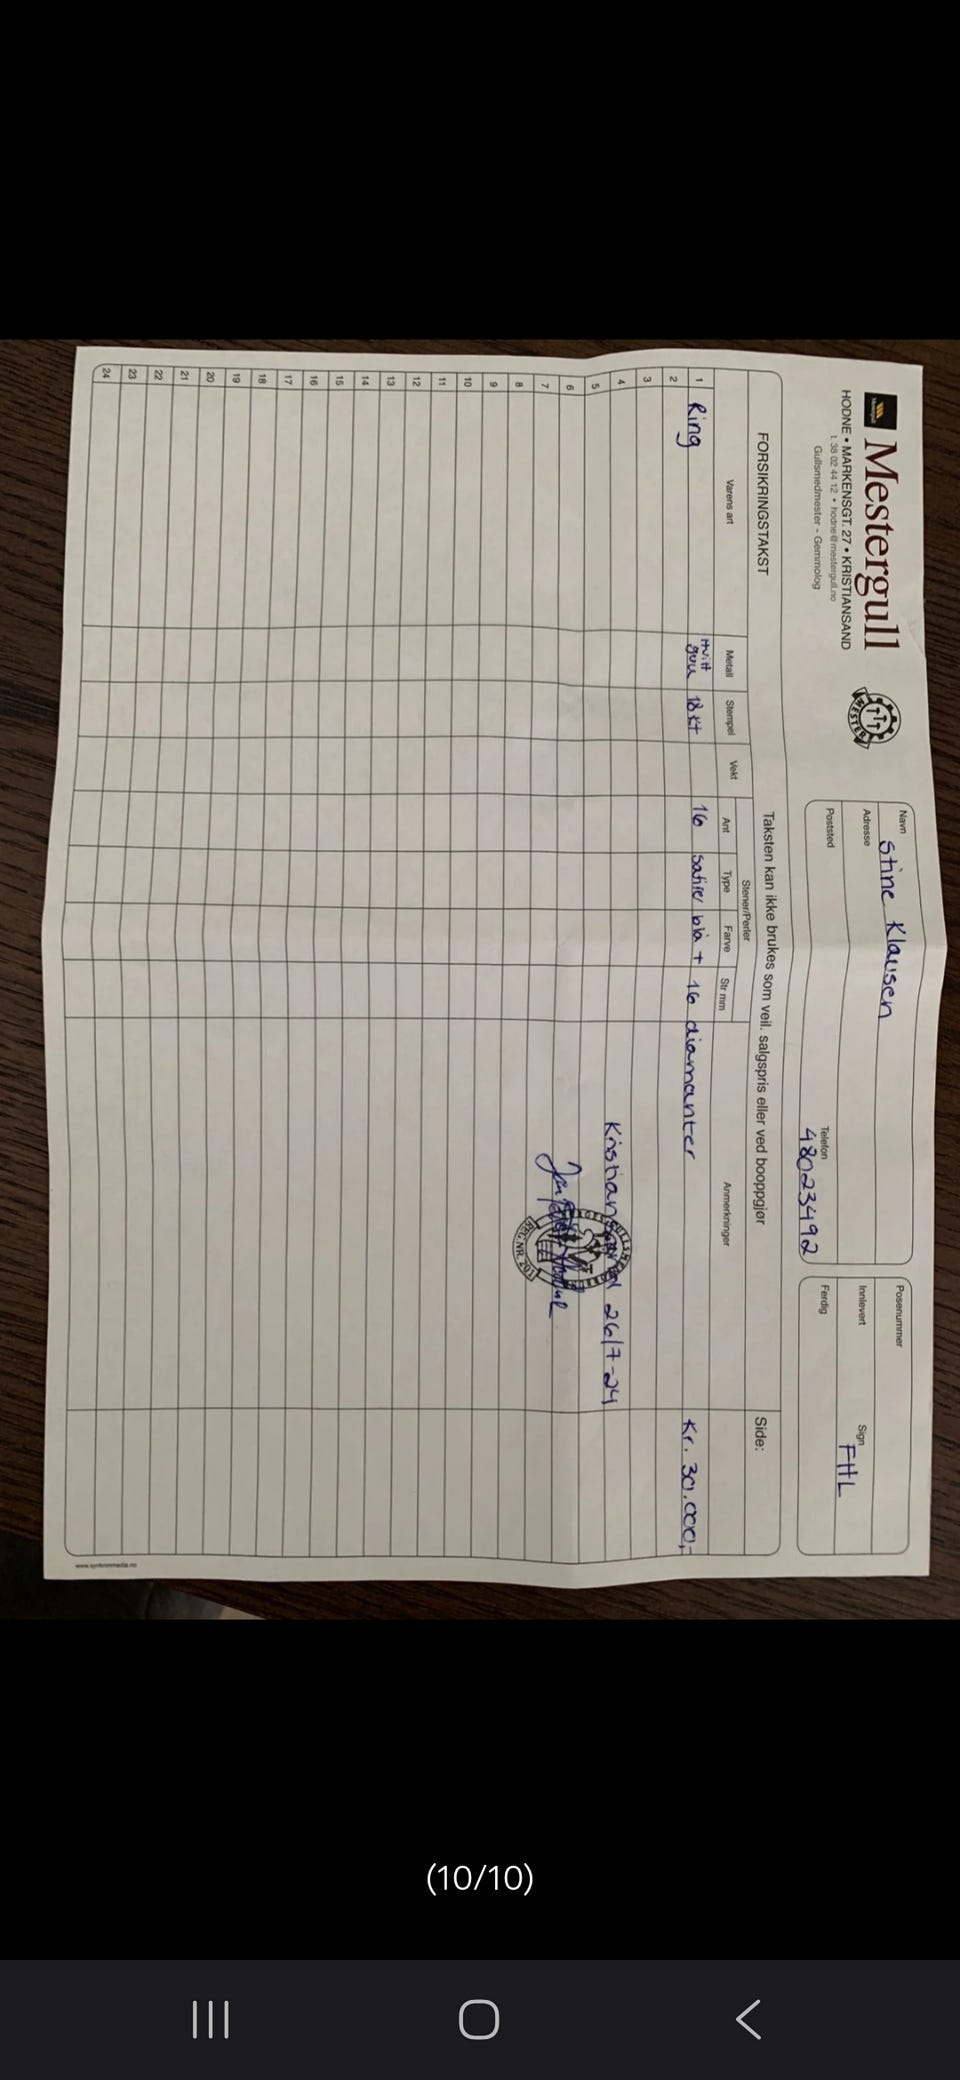 Mestergull
HODNE • MARKENSGT. 27 • KRISTIANSAND
t. 38 02 44 12 • hodne@mestergull.no
Gullsmedmester - Gemmolog
MESTER
Navn
Stine Klausen
Adresse
Poststed
Telefon
48023492
Posenummer
Innlevert
Sign
FHL
Ferdig
FORSIKRINGSTAKST
Taksten kan ikke brukes som veil. salgspris eller ved booppgjør
Side:
Varens art
Metall
Stempel
Vekt
Stener/Perler
Ant
Type
Farve
Str mm
Anmerkninger
1 Ring Hvitt gull 18 kt 16 safirer blå + 16 diamanter Kr. 30.000,-
2
3
4 Kristiansand 26/7-24
5
6
7
8
9
10
11
12
13
14
15
16
17
18
19
20
21
22
23
24
REG.NR. 201
www.synkronmedia.no
(10/10)